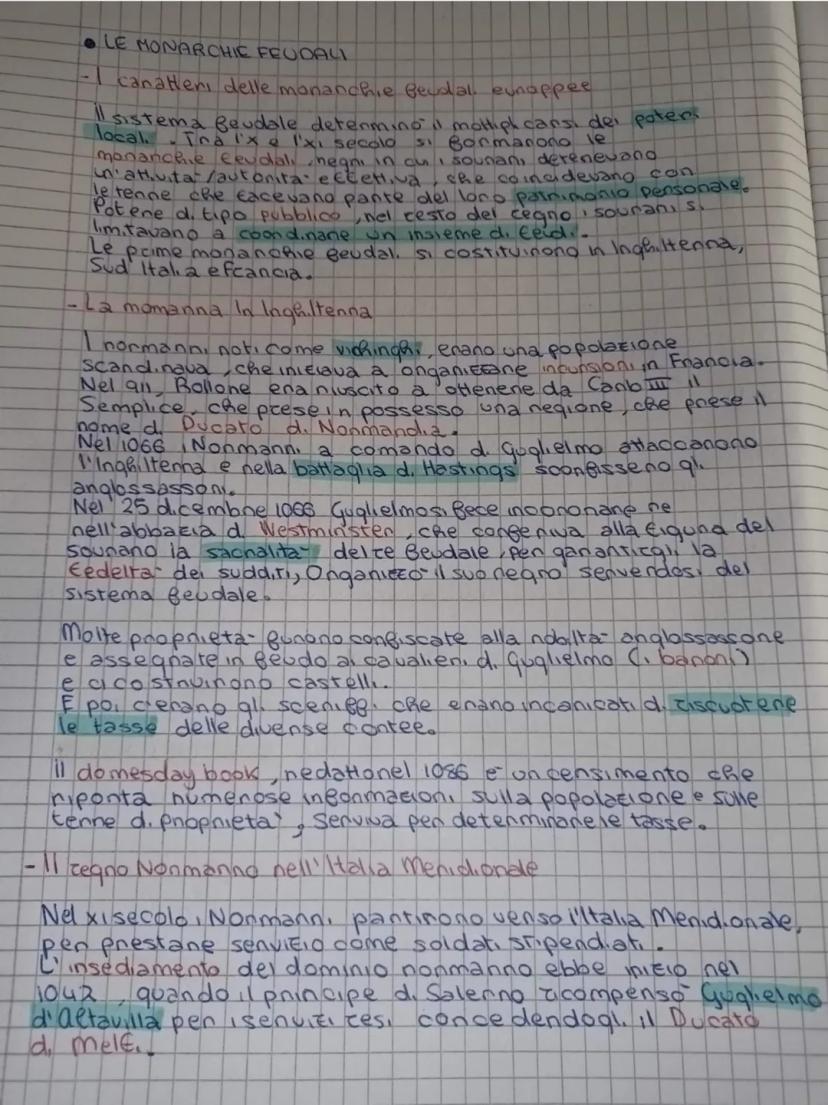 • LE MONARCHIE FEUDALI
- I caratteri delle monarchie feudali europpee
Il sistema feudale determinò il moltiplicarsi dei poteri
locali. Tra l'x e l'xi secolo si formarono le
monarchie feudali, regni in cui i sovrani detenevano
un'attività/autorità effettiva, che coincidevano con
le terre che facevano parte del loro patrimonio personale.
Potere di tipo pubblico, nel resto del regno i sovrani si
limitavano a coordinare un insieme di feudi.
Le prime monarchie feudali si costituirono in Inghilterra,
Sud Italia e francia.
- La momanna In Inghilterra
I normanni noti come vichinghi, erano una popolazione
scandinava, che iniziava a organizzare incursioni in Francia.
Nel 911, Rollone era riuscito a ottenere da Carlo III il
Semplice, che prese in possesso una regione, che prese il
nome di Ducato di Normandia.
Nel 1066 i Normanni a comando di Guglielmo attaccarono
l'Inghilterra e nella battaglia di Hastings sconfissero gli
anglossassoni.
Nel 25 dicembre 1066 Guglielmo si fece incoronare re
nell'abbazia di Westminster, che conferiva alla figura del
sovrano la sacralità del re feudale, per garantirgli la
fedeltà dei sudditi, Organizzò il suo regno servendosi del
sistema feudale.
Molte proprietà furono confiscate alla nobiltà anglossassone
e assegnate in feudo ai cavalieri di Guglielmo (i baroni)
e ci costruirono castelli.
E poi c'erano gli sceriffi che erano incaricati di riscuotere
le tasse delle diverse contee.
il domesday book, redatto nel 1086 è un censimento che
riporta numerose informazioni sulla popolazione e sulle
terre di proprietà, serviva per determinare le tasse.
- Il regno Normanno nell'Italia Meridionale
Nel xi secolo i Normanni partirono verso l'Italia Meridionale,
per prestare servizio come soldati stipendiati.
L'insediamento del dominio normanno ebbe inizio nel
1042, quando il principe di Salerno ricompensò Guglielmo
d'altavilla per i servizi resi concedendogli il Ducato
di Melfi.